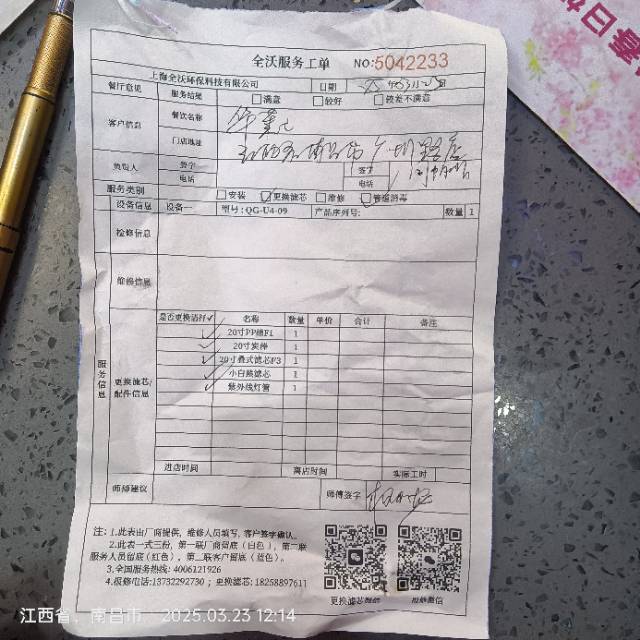 全沃服务工单 NO:5042233
上海全沃环保科技有限公司 日期
餐厅意见 服务结果 满意 较好 较差不满意
客户信息 餐饮名称
门店地址
负责人 签字 签字
电话 电话
服务类别 安装 更换滤芯 维修 管道消毒
设备信息 设备一 型号:QG-U4-09 产品序列号: 数量 1
检修信息
维修信息
是否更换请打✓ 名称 数量 单价 合计 备注
✓ 20寸PP棉F1 1
✓ 20寸炭棒 1
✓ 20寸叠式滤芯F3 1
✓ 小白熊滤芯 1
✓ 紫外线灯管 1
服务信息
更换滤芯/配件信息
进店时间 离店时间 实际工时
师傅建议 师傅签字
注: 1.此表由厂商提供, 维修人员填写, 客户签字确认。
2.此表一式三份, 第一联厂商留底(白色), 第二联
服务人员留底(红色), 第三联客户留底(蓝色)。
3.全国服务热线: 4006121926
4.报修电话:13732292730; 更换滤芯: 18258897611
更换滤芯微信 报修微信
江西省、南昌市 2025.03.23 12:14